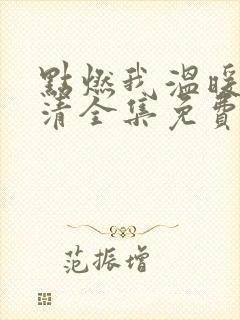 點燃我 溫暖
清全集免費
范振增